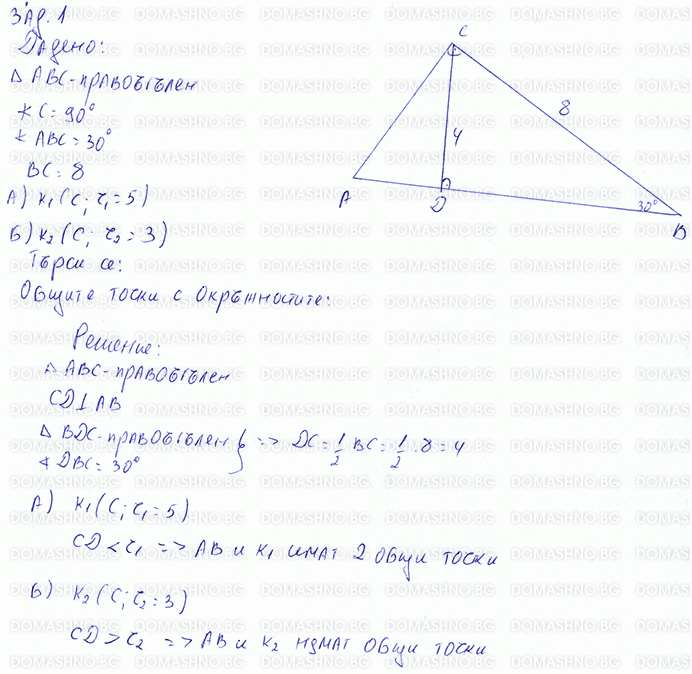 Зад. 1
Дадено:
△ ABC - правоъгълен
∢ C = 90°
∢ ABC = 30°
BC = 8
А) k₁ (C; r₁ = 5)
Б) k₂ (C; r₂ = 3)
Търси се:
Общите точки с окръжностите:
C
8
4
A
D
30°
B
Решение:
△ ABC - правоъгълен
CD ⊥ AB
△ BDC - правоъгълен } => DC = 1/2 BC = 1/2 . 8 = 4
∢ DBC = 30°
А) k₁ (C; r₁ = 5)
CD < r₁ => AB и k₁ имат 2 общи точки
Б) k₂ (C; r₂ = 3)
CD > r₂ => AB и k₂ нямат общи точки
DOMASHNO.BG